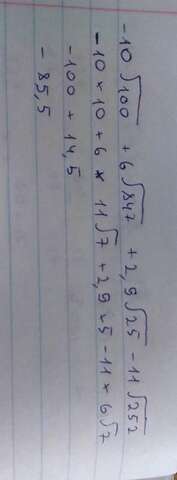 -10√100 + 6√847 + 2,9√25 - 11√252
-10 * 10 + 6 * 11√7 + 2,9 * 5 - 11 * 6√7
-100 + 14,5
- 85,5